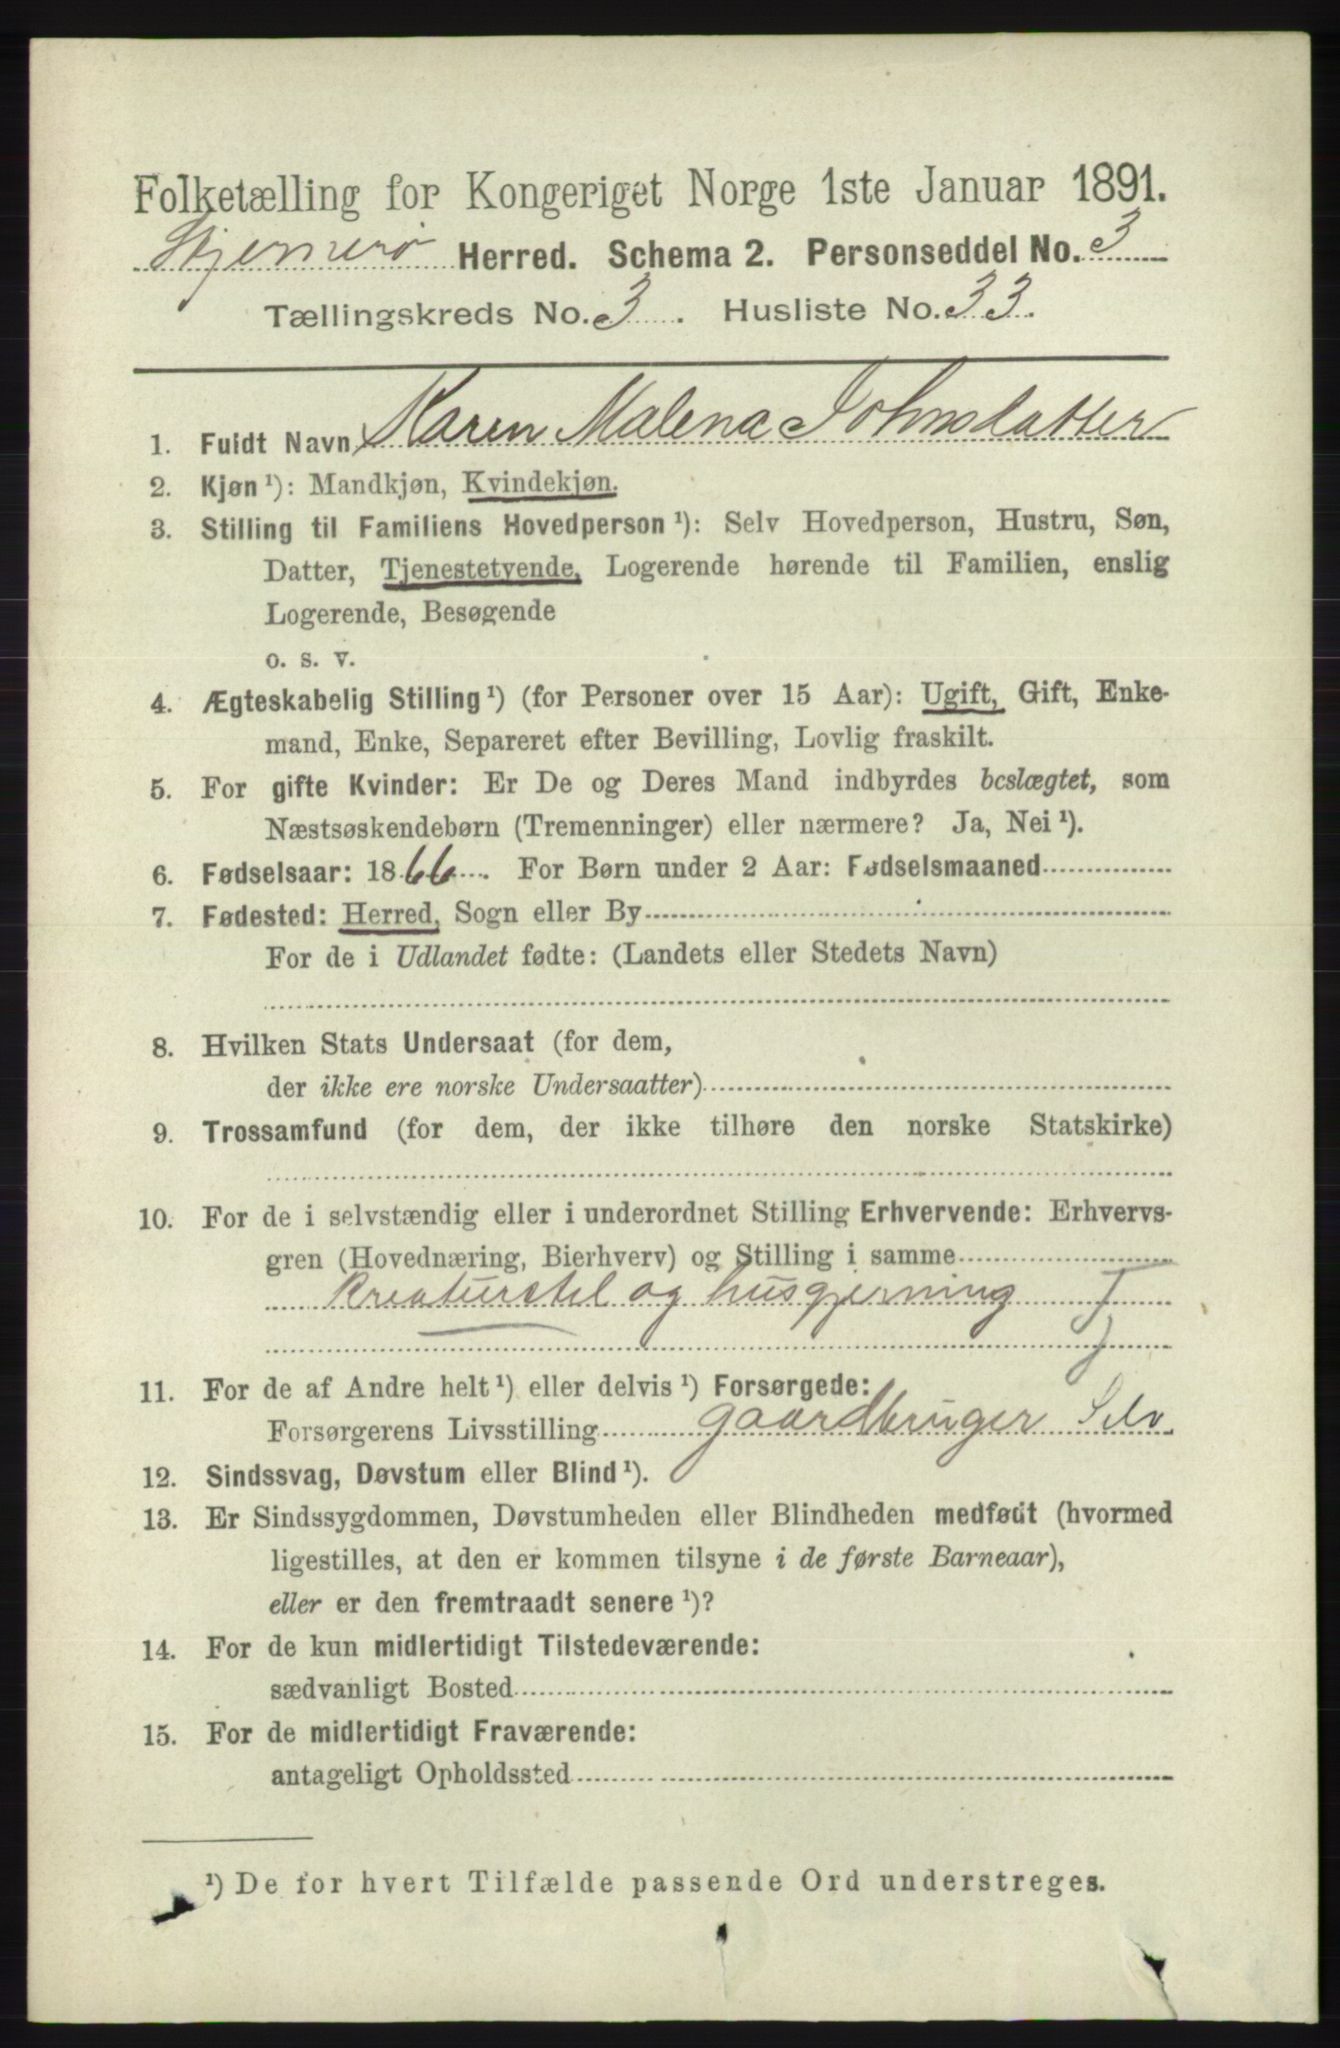 Folketælling for Kongeriget Norge 1ste Januar 1891.
Skjernerø Herred. Schema 2. Personseddel No. 3
Tællingskreds No. 3. Husliste No. 33.
1. Fuldt Navn Karen Malena Johnsdatter
2. Kjøn ¹): Mandkjøn, Kvindekjøn.
3. Stilling til Familiens Hovedperson ¹): Selv Hovedperson, Hustru, Søn,
Datter, Tjenestetyende, Logerende hørende til Familien, enslig
Logerende, Besøgende
o. s. v.
4. Ægteskabelig Stilling ¹) (for Personer over 15 Aar): Ugift, Gift, Enke-
mand, Enke, Separeret efter Bevilling, Lovlig fraskilt.
5. For gifte Kvinder: Er De og Deres Mand indbyrdes beslægtet, som
Næstsøskendebørn (Tremenninger) eller nærmere? Ja, Nei ¹).
6. Fødselsaar: 1866. For Børn under 2 Aar: Fødselsmaaned
7. Fødested: Herred, Sogn eller By
For de i Udlandet fødte: (Landets eller Stedets Navn)
8. Hvilken Stats Undersaat (for dem,
der ikke ere norske Undersaatter)
9. Trossamfund (for dem, der ikke tilhøre den norske Statskirke)
10. For de i selvstændig eller i underordnet Stilling Erhvervende: Erhvervs-
gren (Hovednæring, Bierhverv) og Stilling i samme
Kreaturstel og husgjerning T
11. For de af Andre helt ¹) eller delvis ¹) Forsørgede:
Forsørgerens Livsstilling gaardbruger Selv
12. Sindssvag, Døvstum eller Blind ¹).
13. Er Sindssygdommen, Døvstumheden eller Blindheden medfødt (hvormed
ligestilles, at den er kommen tilsyne i de første Barneaar),
eller er den fremtraadt senere ¹)?
14. For de kun midlertidigt Tilstedeværende:
sædvanligt Bosted
15. For de midlertidigt Fraværende:
antageligt Opholdssted
¹) De for hvert Tilfælde passende Ord understreges.